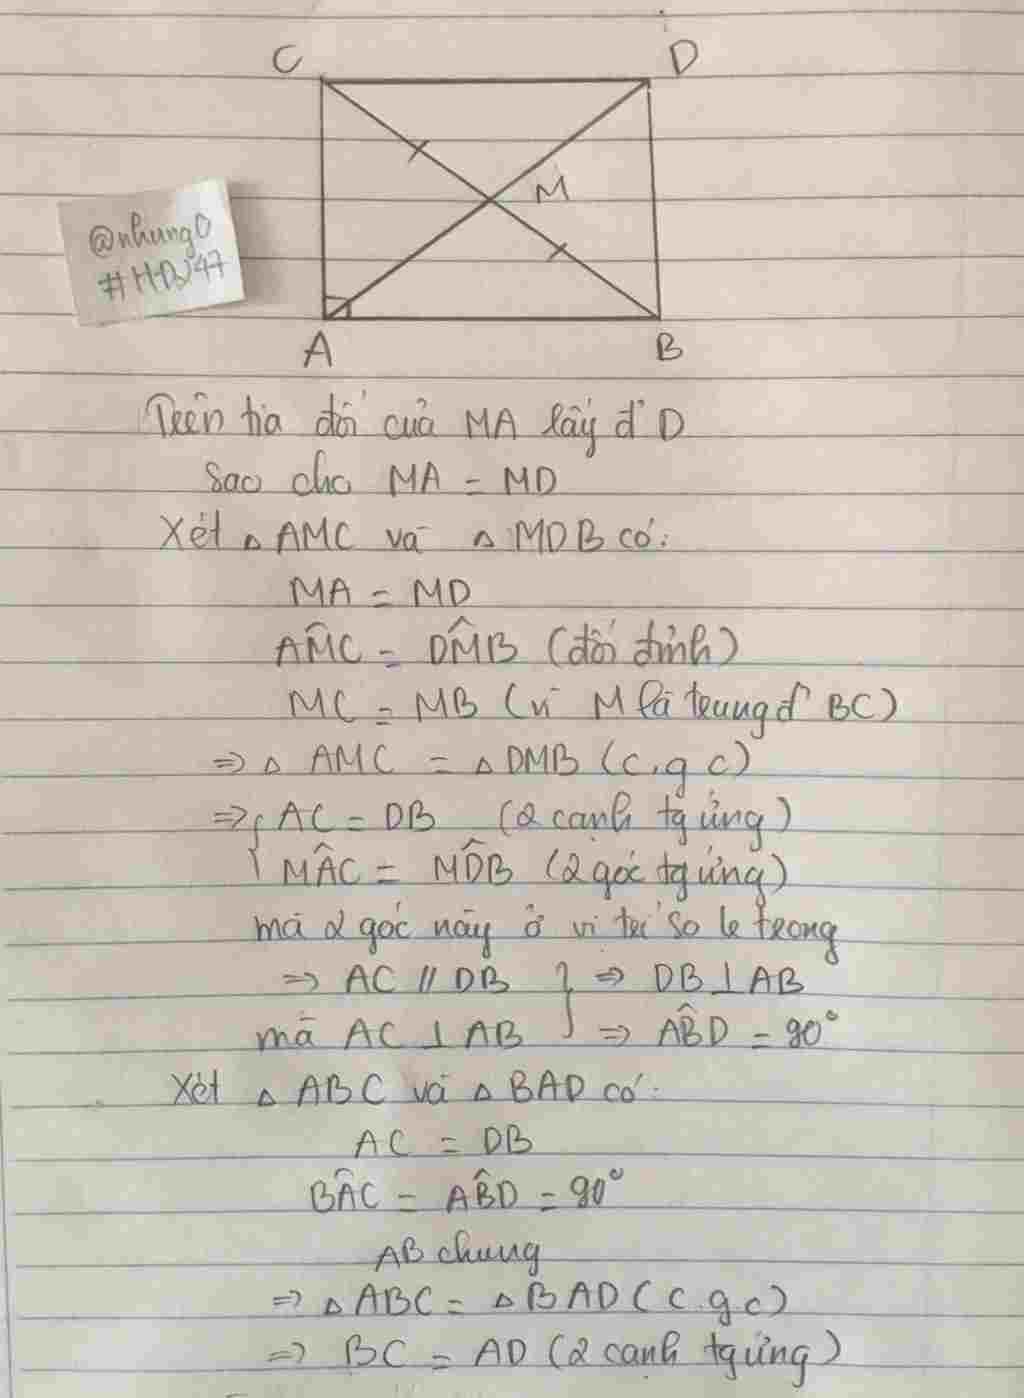 C D
M
@nhung0
#HDJ47
A B
Trên tia đối của MA lấy đ' D
sao cho MA = MD
Xét △ AMC và △ MDB có:
MA = MD
AM̂C = DM̂B (đối đỉnh)
MC = MB (vì M là trung đ' BC)
⇒ △ AMC = △ DMB (c.g c)
⇒ { AC = DB (2 cạnh tg ứng)
MÂC = MD̂B (2 góc tg ứng)
mà 2 góc này ở vị trí so le trong
⇒ AC // DB } ⇒ DB ⊥ AB
mà AC ⊥ AB ⇒ AB̂D = 90°
Xét △ ABC và △ BAD có:
AC = DB
BÂC = AB̂D = 90°
AB chung
⇒ △ ABC = △ BAD (c.g c)
⇒ BC = AD (2 cạnh tg ứng)